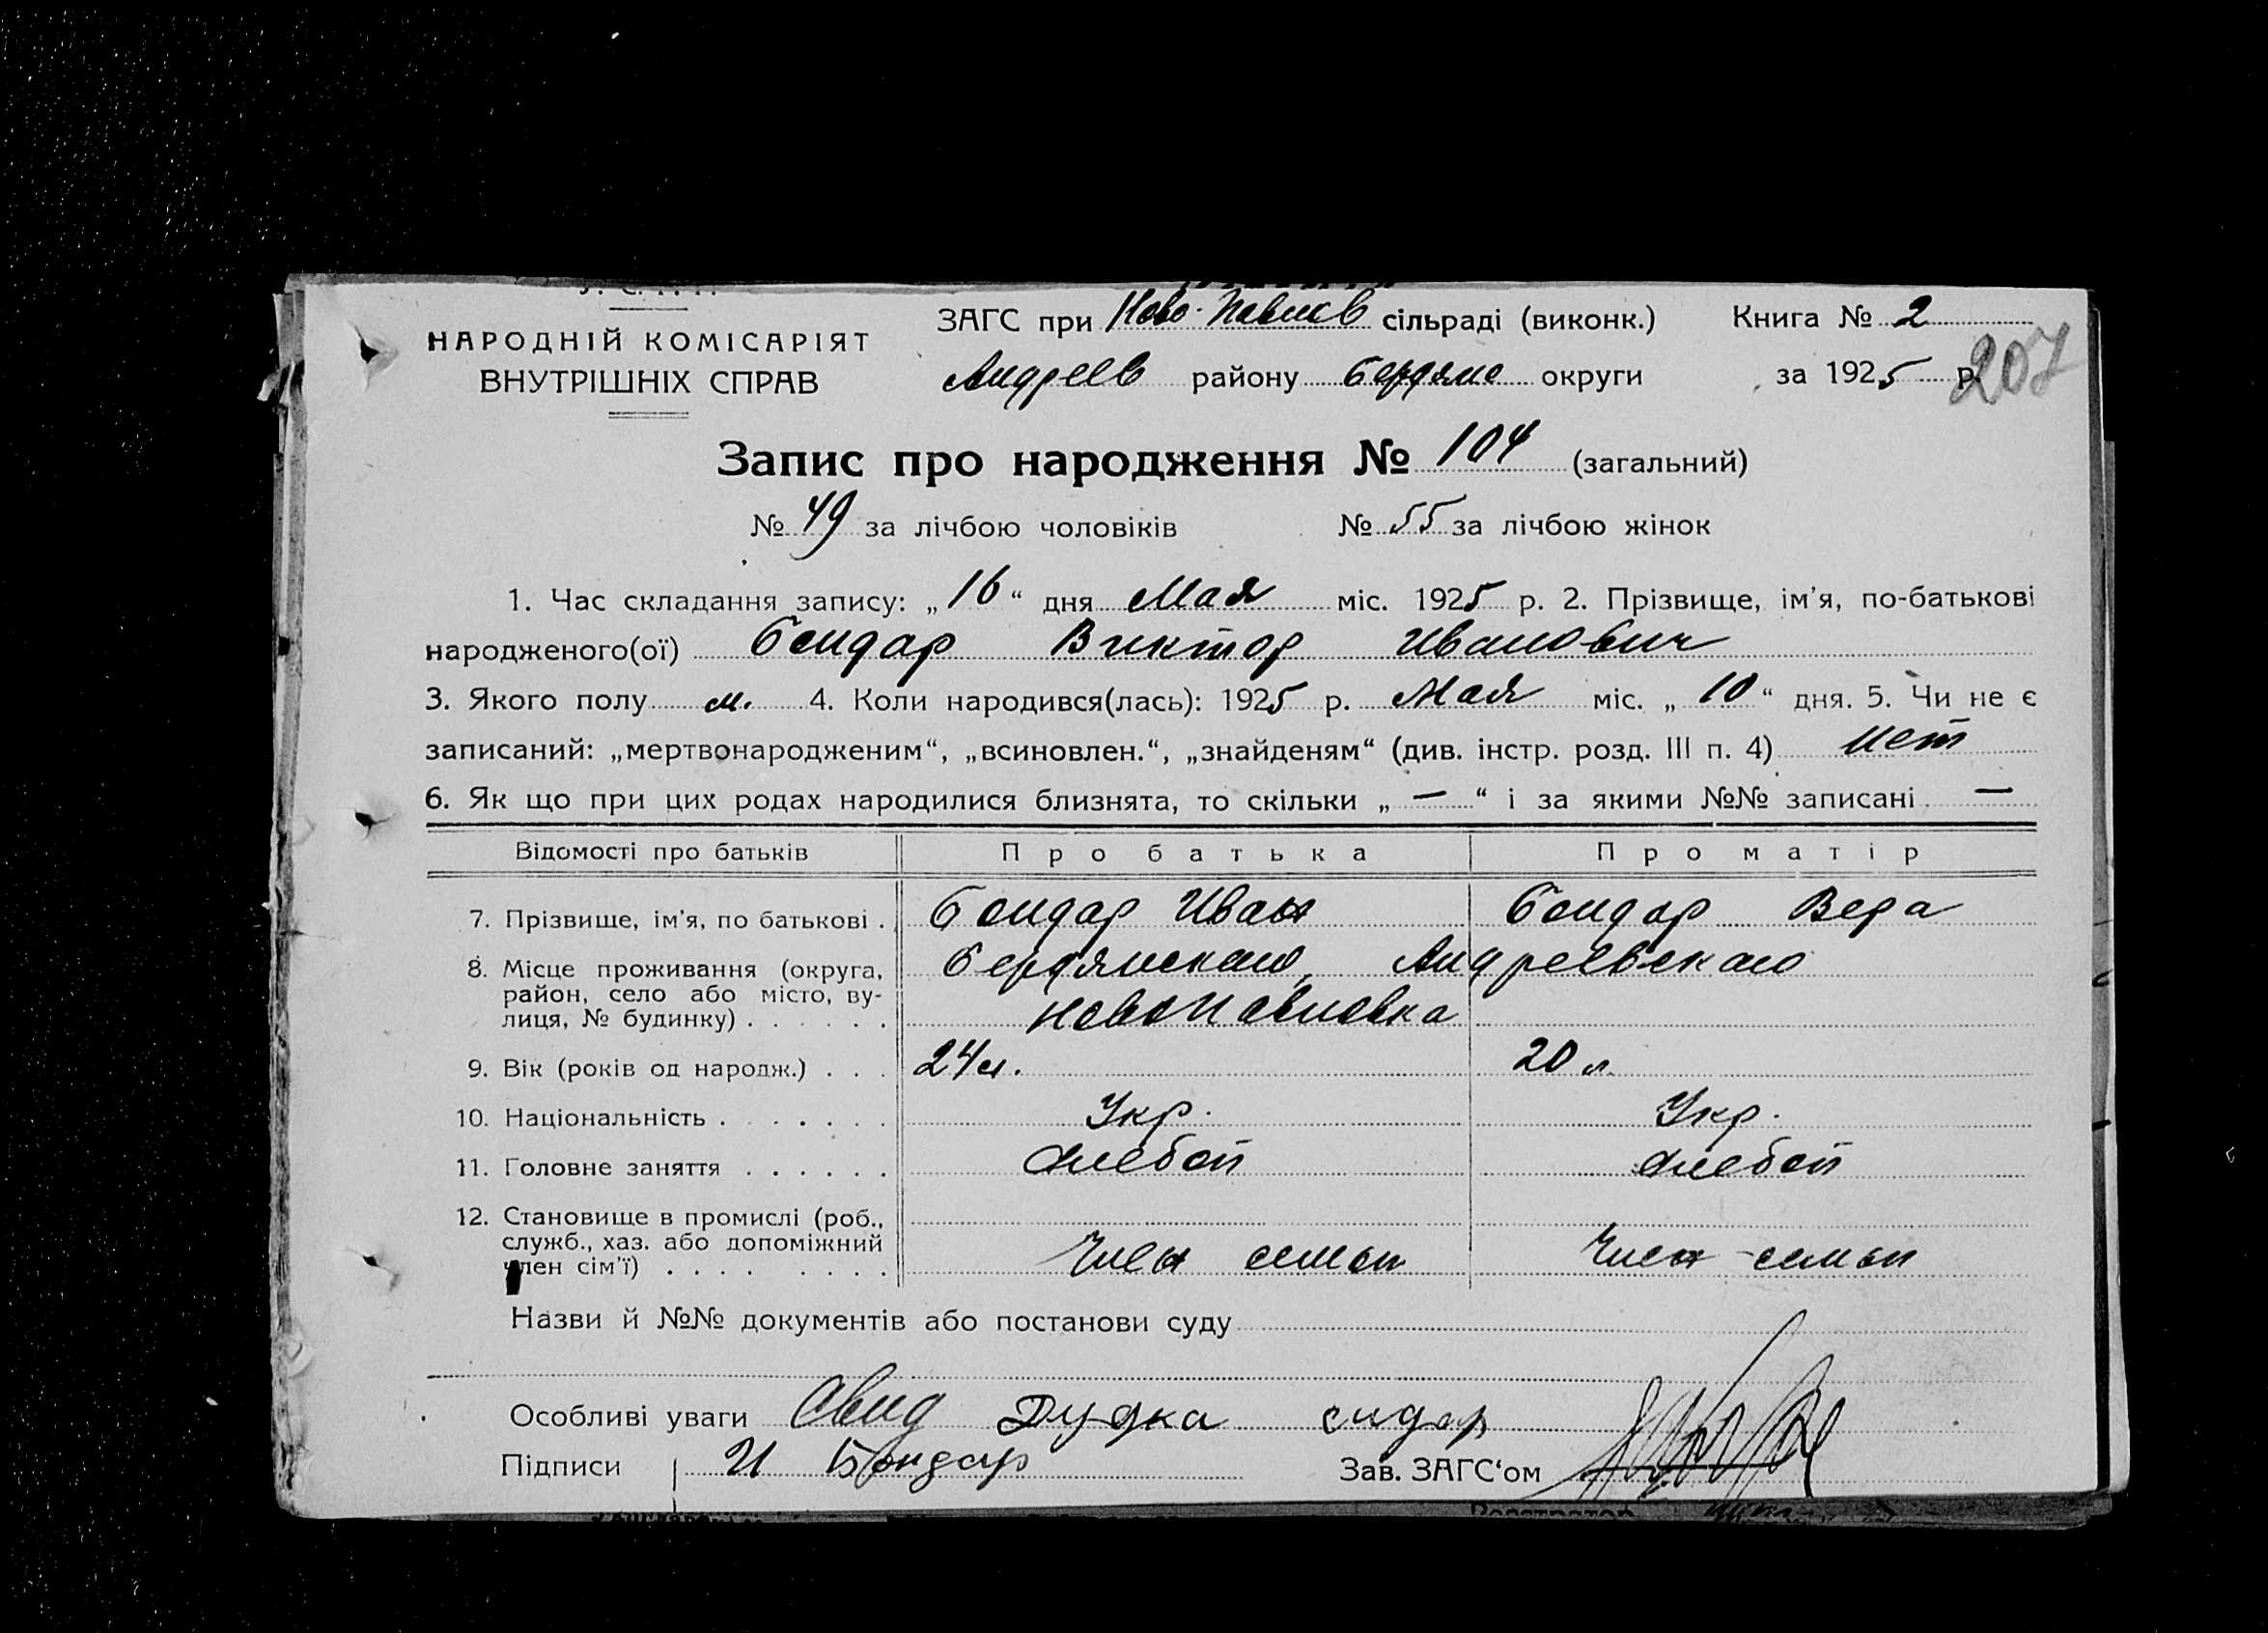 НАРОДНІЙ КОМІСАРІЯТ
ВНУТРІШНІХ СПРАВ
ЗАГС при Ново-Павлов сільраді (виконк.) Книга № 2
Андреев району Бердянс округи за 1925 р. 207
Запис про народження № 104 (загальний)
№ 49 за лічбою чоловіків № 55 за лічбою жінок
1. Час складання запису: „16“ дня Мая міс. 1925 р. 2. Прізвище, ім'я, по-батькові
народженого(ої) Бондар Виктор Иванович
3. Якого полу м. 4. Коли народився(лась): 1925 р. Мая міс. „10“ дня. 5. Чи не є
записаний: „мертвонародженим“, „всиновлен.“, „знайденям“ (див. інстр. розд. III п. 4) нет
6. Як що при цих родах народилися близнята, то скільки „—“ і за якими №№ записані —
Відомості про батьків Про батька Про матір
7. Прізвище, ім'я, по батькові . Бондар Иван Бондар Вера
8. Місце проживання (округа, Бердянского, Андреевского
район, село або місто, ву-
лиця, № будинку) . . . . . . НовоПавловка
9. Вік (років од народж.) . . . 24 л. 20 л.
10. Національність . . . . . . . Укр. Укр.
11. Головне заняття . . . . . . Хлебоп Хлебоп
12. Становище в промислі (роб.,
служб., хаз. або допоміжний
член сім'ї) . . . . . . . . Член семьи Член семьи
Назви й №№ документів або постанови суду
Особливі уваги Свид Дудка сидор
Підписи И Бондар Зав. ЗАГС‘ом